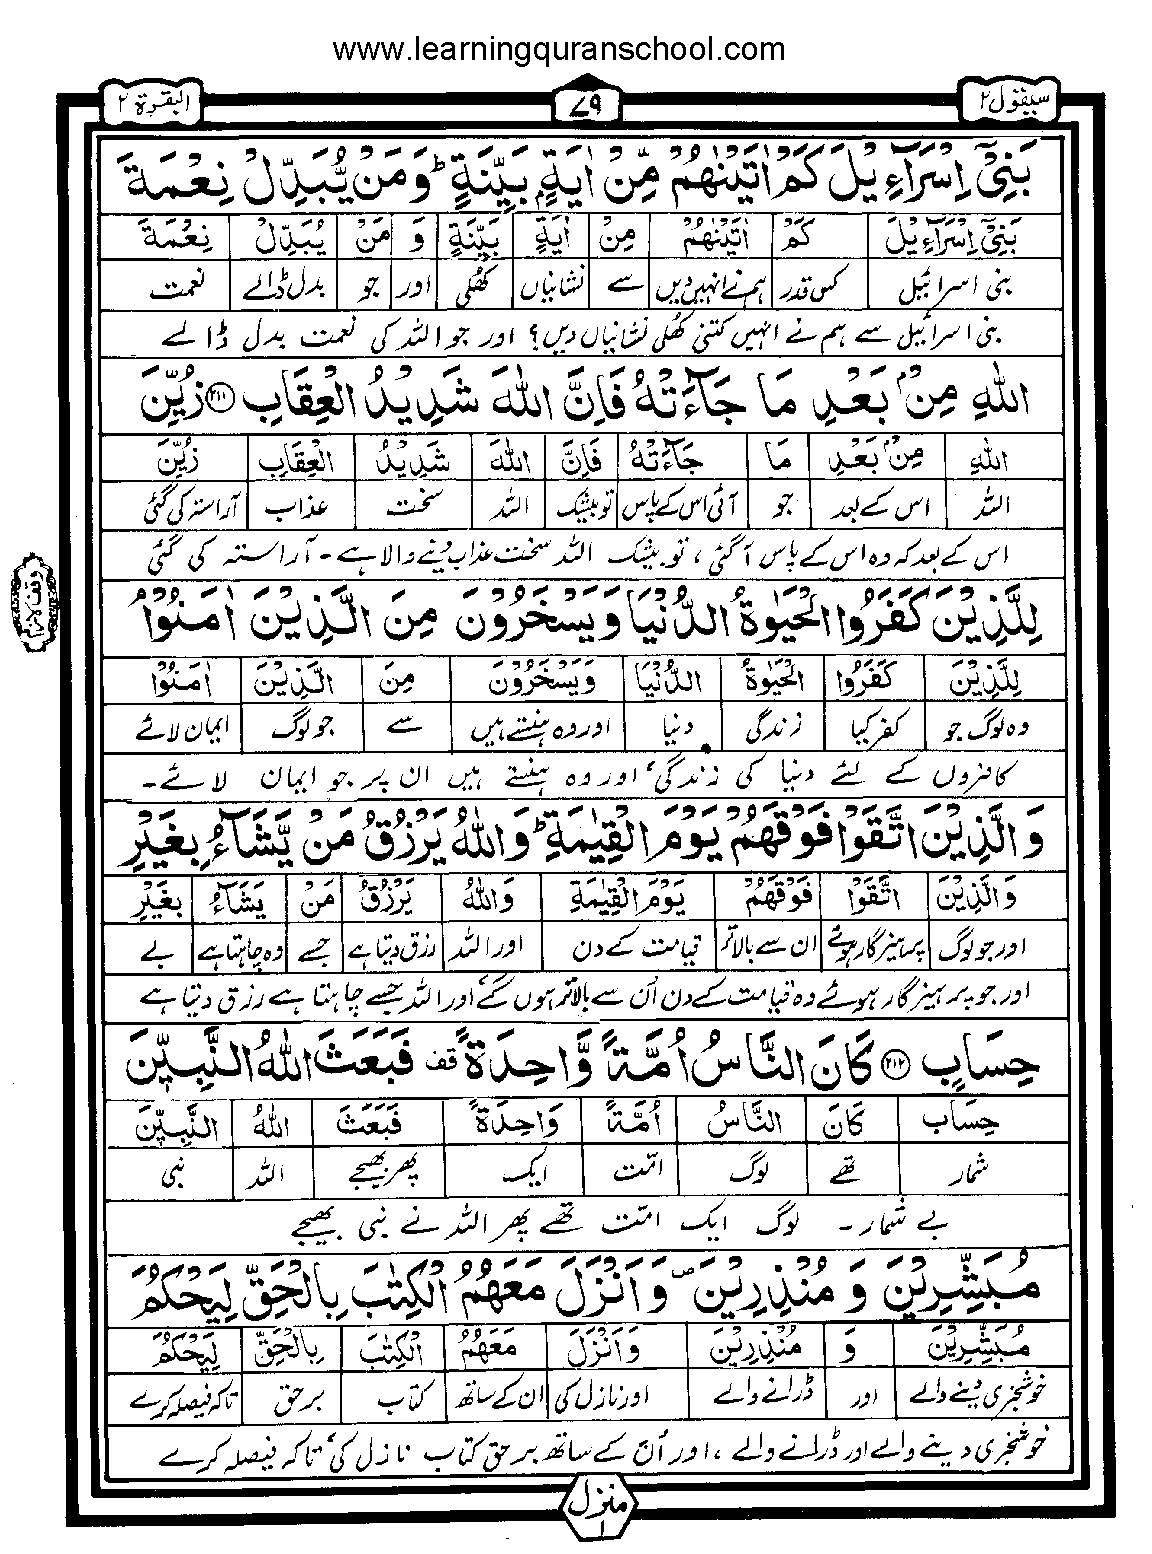 www.learningquranschool.com
سيقول ٢ ٧٩ البقرة ٢
بَنِیْۤ اِسْرَآءِیْلَ كَمْ اٰتَیْنٰهُمْ مِّنْ اٰیَةٍۭ بَیِّنَةٍ ؕ وَ مَنْ یُّبَدِّلْ نِعْمَةَ
بَنِیْۤ اِسْرَآءِیْلَ كَمْ اٰتَیْنٰهُمْ مِنْ اٰیَةٍ بَیِّنَةٍ وَ مَنْ یُبَدِّلْ نِعْمَةَ
بنی اسرائیل کس قدر ہم نے انہیں دیں سے نشانیاں کھلی اور جو بدل ڈالے نعمت
بنی اسرائیل سے ہم نے انہیں کتنی کھلی نشانیاں دیں؟ اور جو اللہ کی نعمت بدل ڈالے
اللّٰهِ مِنْۢ بَعْدِ مَا جَآءَتْهُ فَاِنَّ اللّٰهَ شَدِیْدُ الْعِقَابِ ﴿۲۱۱﴾ زُیِّنَ
اللّٰهِ مِنْۢ بَعْدِ مَا جَآءَتْهُ فَاِنَّ اللّٰهَ شَدِیْدُ الْعِقَابِ زُیِّنَ
اللہ اس کے بعد جو آئی اس کے پاس تو بیشک اللہ سخت عذاب آراستہ کی گئی
اس کے بعد کہ وہ اس کے پاس آگئی، تو بیشک اللہ سخت عذاب دینے والا ہے۔ آراستہ کی گئی
لِلَّذِیْنَ كَفَرُوا الْحَیٰوةُ الدُّنْیَا وَ یَسْخَرُوْنَ مِنَ الَّذِیْنَ اٰمَنُوْا ۘ
لِلَّذِیْنَ كَفَرُوا الْحَیٰوةُ الدُّنْیَا وَیَسْخَرُوْنَ مِنَ الَّذِیْنَ اٰمَنُوْا
وہ لوگ جو کفر کیا زندگی دنیا اور وہ ہنستے ہیں سے جو لوگ ایمان لائے
کافروں کے لئے دنیا کی زندگی، اور وہ ہنستے ہیں ان پر جو ایمان لائے۔
وَ الَّذِیْنَ اتَّقَوْا فَوْقَهُمْ یَوْمَ الْقِیٰمَةِ ؕ وَ اللّٰهُ یَرْزُقُ مَنْ یَّشَآءُ بِغَیْرِ
وَالَّذِیْنَ اتَّقَوْا فَوْقَهُمْ یَوْمَ الْقِیٰمَةِ وَاللّٰهُ یَرْزُقُ مَنْ یَشَآءُ بِغَیْرِ
اور جو لوگ پرہیزگار ہوئے ان سے بالاتر قیامت کے دن اور اللہ رزق دیتا ہے جسے وہ چاہتا ہے بے
اور جو پرہیزگار ہوئے وہ قیامت کے دن اُن سے بالاتر ہوں گے، اور اللہ جسے چاہتا ہے رزق دیتا ہے
حِسَابٍ ﴿۲۱۲﴾ كَانَ النَّاسُ اُمَّةً وَّاحِدَةً قف فَبَعَثَ اللّٰهُ النَّبِیّٖنَ
حِسَابٍ كَانَ النَّاسُ اُمَّةً وَاحِدَةً فَبَعَثَ اللّٰهُ النَّبِیّٖنَ
شمار تھے لوگ امّت ایک پھر بھیجے اللہ نبی
بے شمار۔ لوگ ایک امّت تھے پھر اللہ نے نبی بھیجے
مُبَشِّرِیْنَ وَ مُنْذِرِیْنَ ۪ وَ اَنْزَلَ مَعَهُمُ الْكِتٰبَ بِالْحَقِّ لِیَحْكُمَ
مُبَشِّرِیْنَ وَ مُنْذِرِیْنَ وَاَنْزَلَ مَعَهُمُ الْكِتٰبَ بِالْحَقِّ لِیَحْكُمَ
خوشخبری دینے والے اور ڈرانے والے اور نازل کی ان کے ساتھ کتاب برحق تاکہ فیصلہ کرے
خوشخبری دینے والے اور ڈرانے والے، اور اُن کے ساتھ برحق کتاب نازل کی، تاکہ فیصلہ کرے
منزل ١